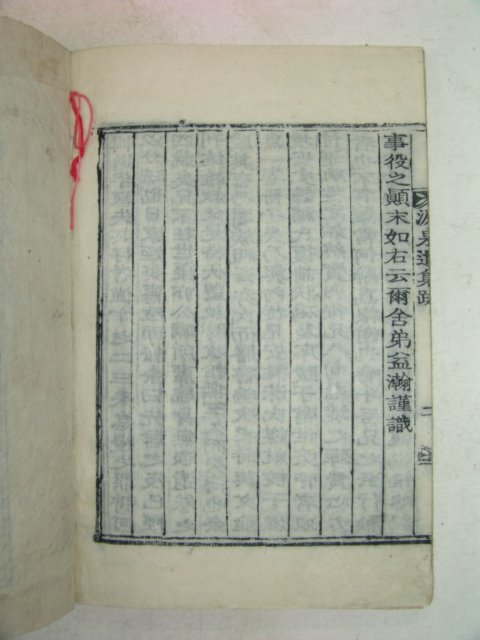 事役之顚末如右云爾舍弟益瀚謹識
遺集跋
二